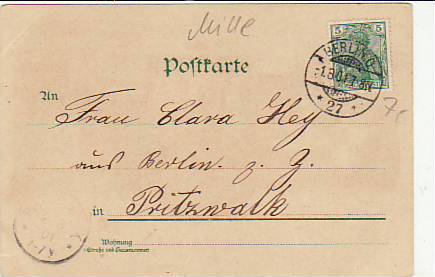 Mille
Postkarte
5
BERLIN O
27
An
Frau Clara Hey
aus Berlin z. Z.
in Pritzwalk
Wohnung
(Straße und Hausnummer)